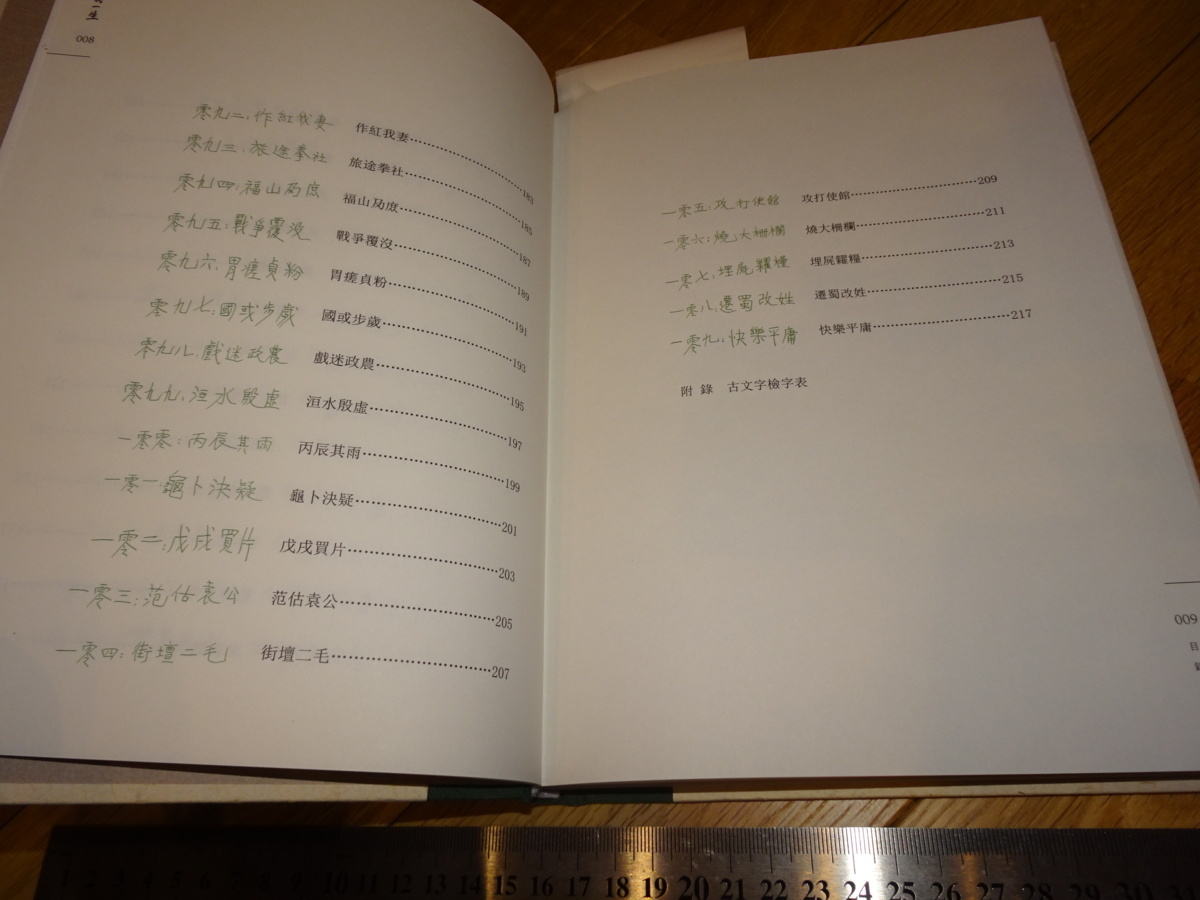 一生
008
零九二：作紅我妻 作紅我妻……183
零九三：旅途拳社 旅途拳社……185
零九四：福山劦庶 福山劦庶……187
零九五：戰爭覆没 戰爭覆沒……189
零九六：胃瘥貞粉 胃瘥貞粉……191
零九七：國或步歲 國或步歲……193
零九八：戲迷政農 戲迷政農……195
零九九：洹水殷虛 洹水殷虛……197
一零零：丙辰其雨 丙辰其雨……199
一零一：龜卜決疑 龜卜決疑……201
一零二：戊戌買片 戊戌買片……203
一零三：范估袁公 范估袁公……205
一零四：街壇二毛 街壇二毛……207
一零五：攻打使館 攻打使館……209
一零六：燒大柵欄 燒大柵欄……211
一零七：埋屍糴糧 埋屍糴糧……213
一零八：遷蜀改姓 遷蜀改姓……215
一零九：快樂平庸 快樂平庸……217
附錄 古文字檢字表
009
目
1 2 3 4 5 6 7 8 9 10 11 12 13 14 15 16 17 18 19 20 21 22 23 24 25 26 27 28 29 30 31